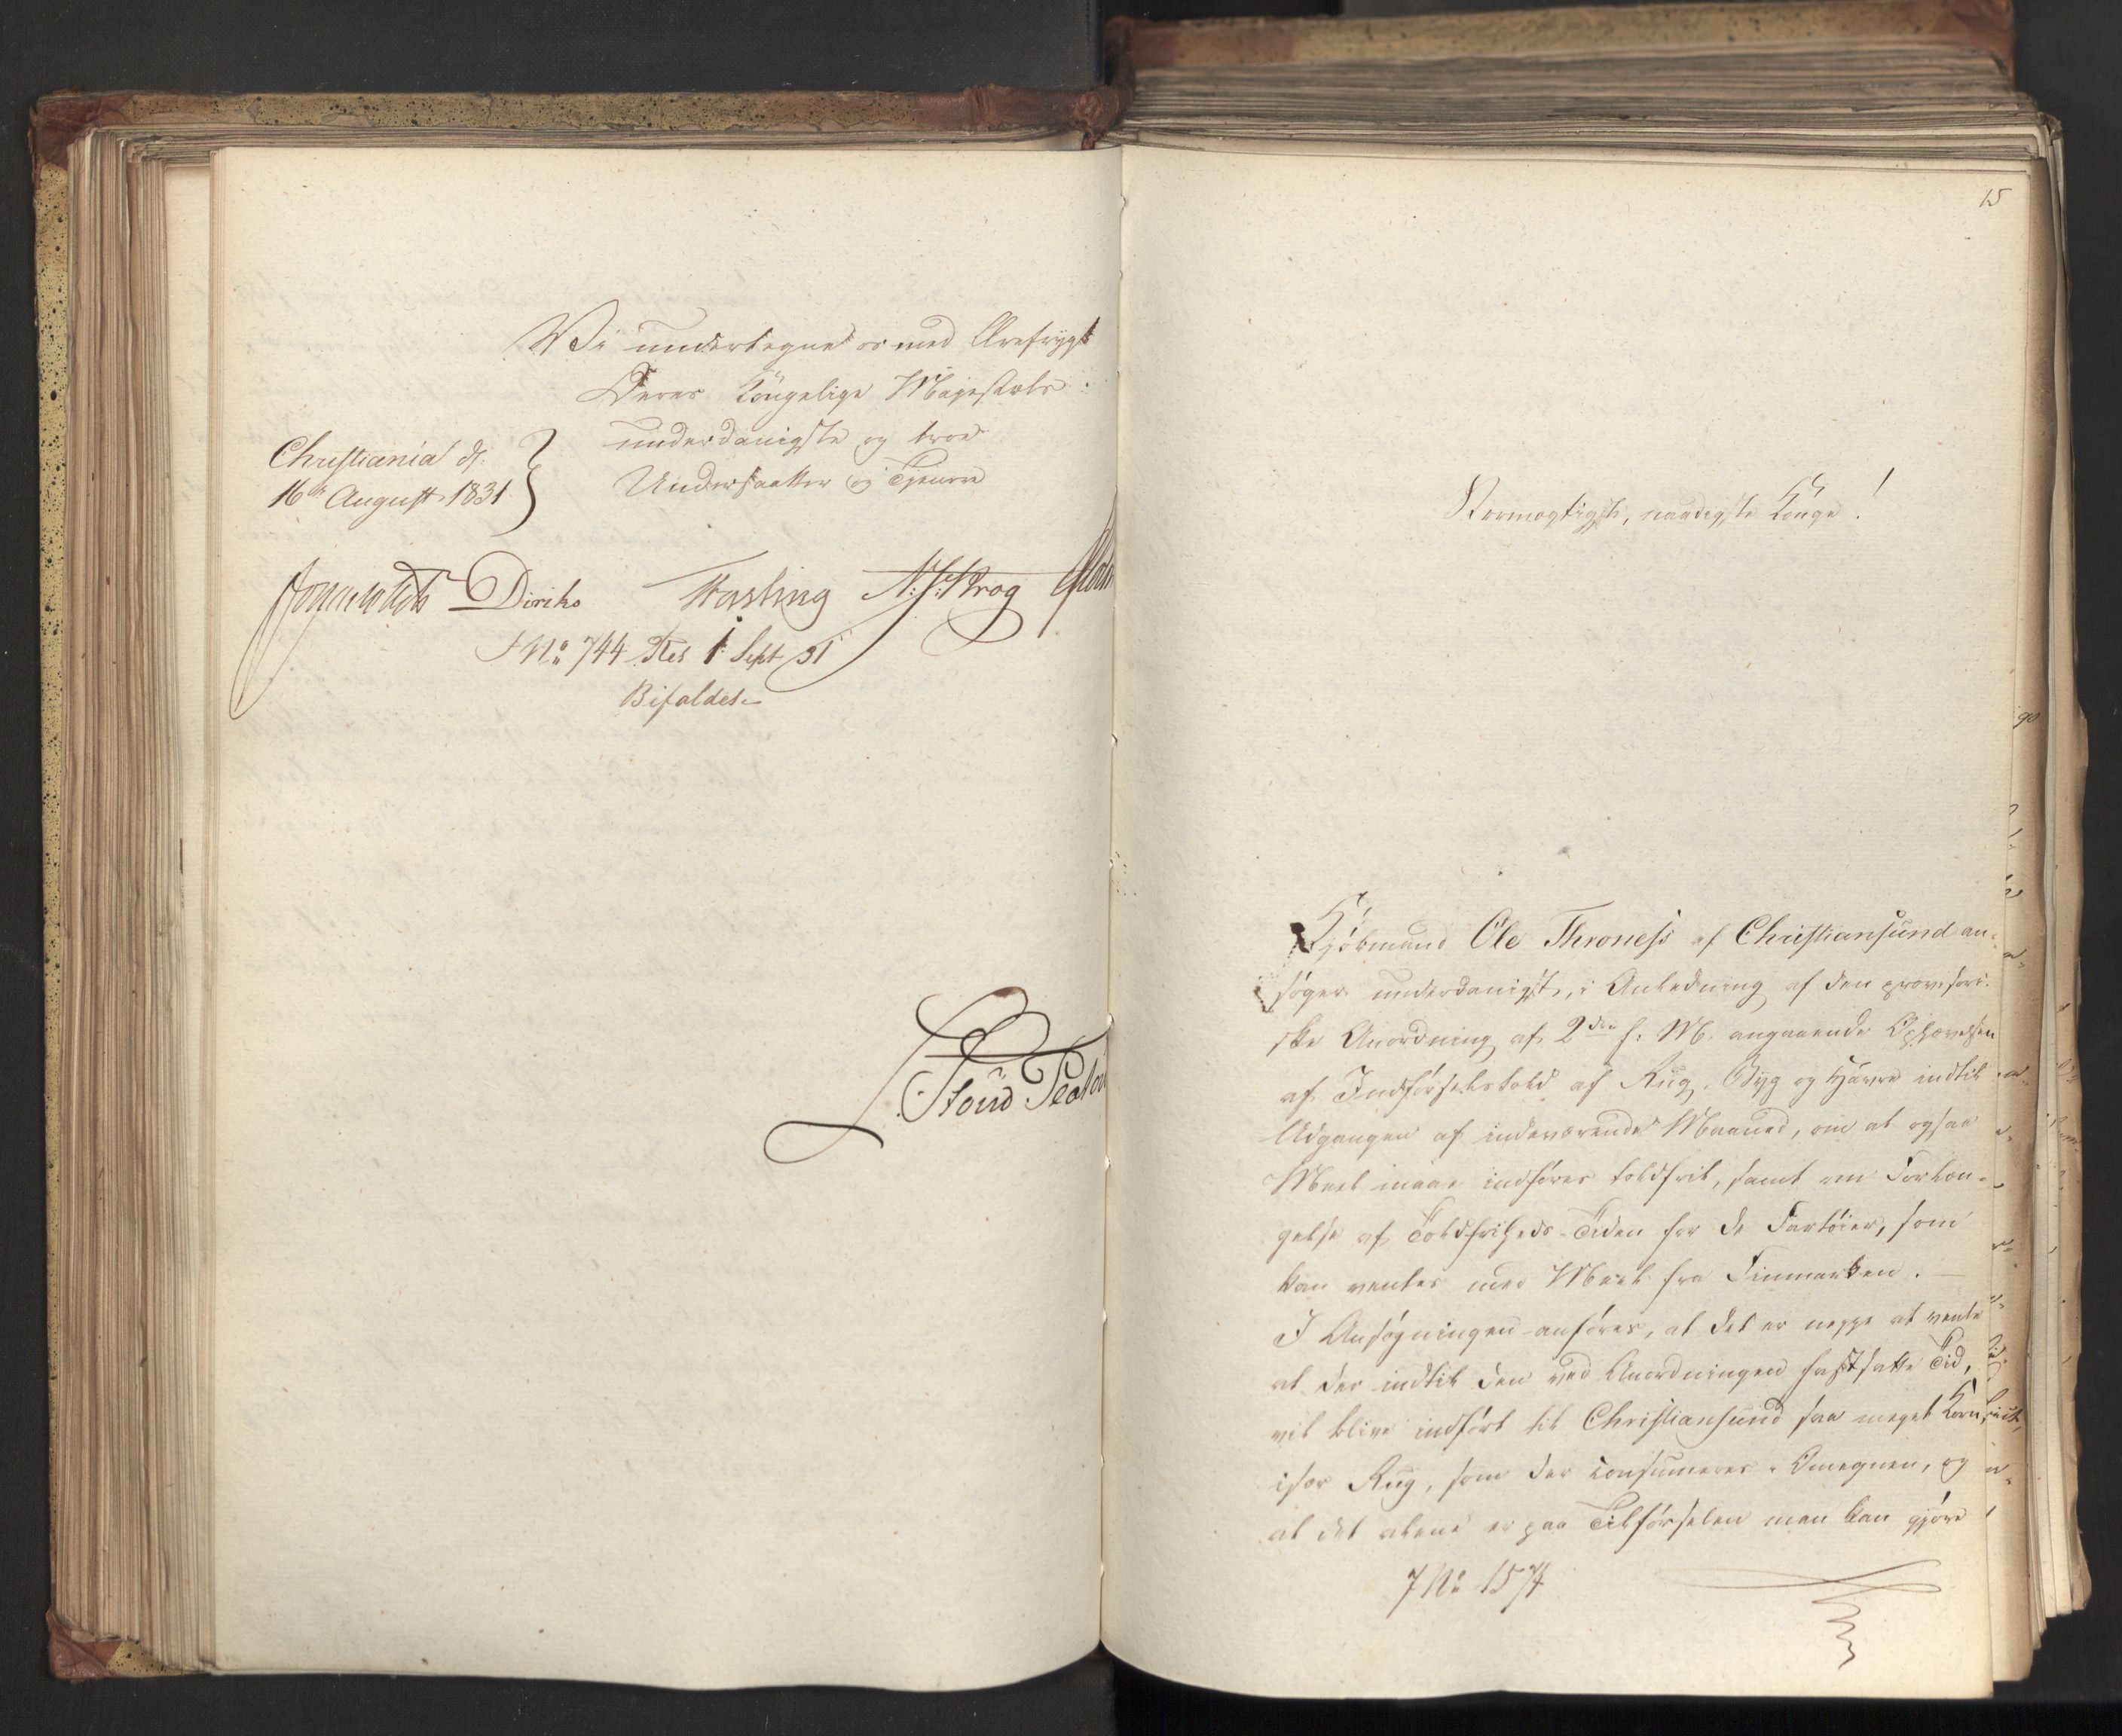 Vi undertegne os med Ærefrygt
Deres Kongelige Majestæts
underdanigste og troe
Undersaatter og Tjenere
Christiania d.
16de August 1831
Diriks Fasting N:J:Krog
No 744 Res 1 Sept 31
Bifaldet
15
Stormægtigste, naadigste Konge!
Kjøbmand Ole Throness af Christiansund an-
søger underdanigst, i Anledning af den provisori-
ske Anordning af 2den f. M. angaaende Ophævelsen
af Indførselstold af Rug, Byg og Havre indtil
Udgangen af indeværende Maaned, om at ogsaa
Meel maae indføres toldfrit, samt om Forlæn-
gelse af Toldfriheds-Tiden for de Fartøier, som
kan ventes med Meel fra Finmarken.
I Ansøgningen anføres, at det er neppe at vente
at der indtil den ved Anordningen fastsatte Tid,
vil blive indført til Christiansund saa meget Korn,
især Rug, som der consumeres i Omegnen, og
at det alene er paa Tilførselen man kan gjøre
No 1574